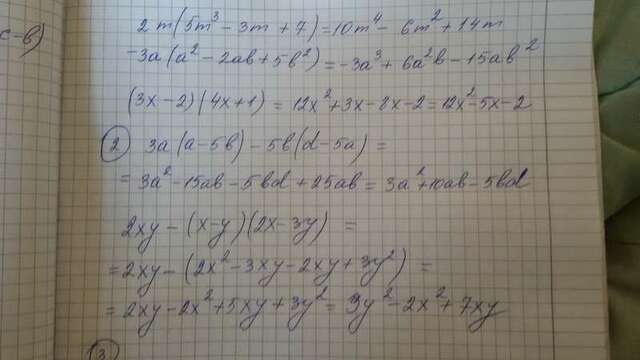 с-в)
2m(5m³-3m+7)=10m⁴-6m²+14m
-3a(a²-2ab+5b²)=-3a³+6a²b-15ab²
(3x-2)(4x+1)=12x²+3x-8x-2=12x²-5x-2
② 3a(a-5b)-5b(d-5a)=
=3a²-15ab-5bd+25ab=3a²+10ab-5bd
2xy-(x-y)(2x-3y)=
=2xy-(2x²-3xy-2xy+3y²)=
=2xy-2x²+5xy+3y²=3y²-2x²+7xy
③